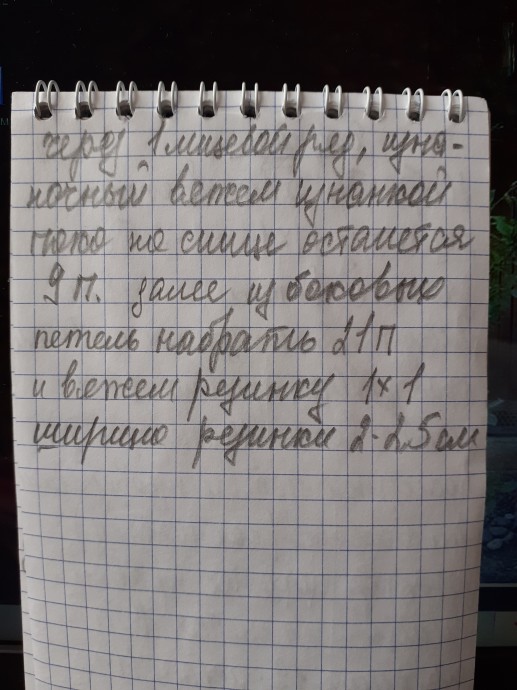 через 1 лицевой ряд, изна-
ночный вяжем изнанкой
пока на спице останется
9 п. далее из боковых
петель набрать 21 п
и вяжем резинку 1×1
ширина резинки 2-2.5 см